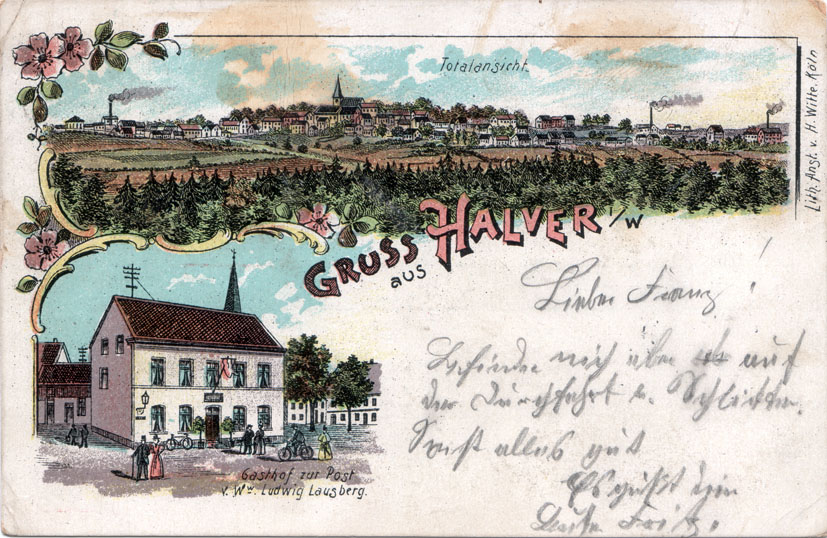 Totalansicht.
Lith. Anst. v. H. Witte. Köln
GRUSS
aus
HALVER i/W
Gasthof zur Post
v. Ww. Ludwig Lausberg.
Lieber Franz!
Befinde mich auf
der Durchfahrt
Sonst alles gut
Es grüßt dein
Fritz.